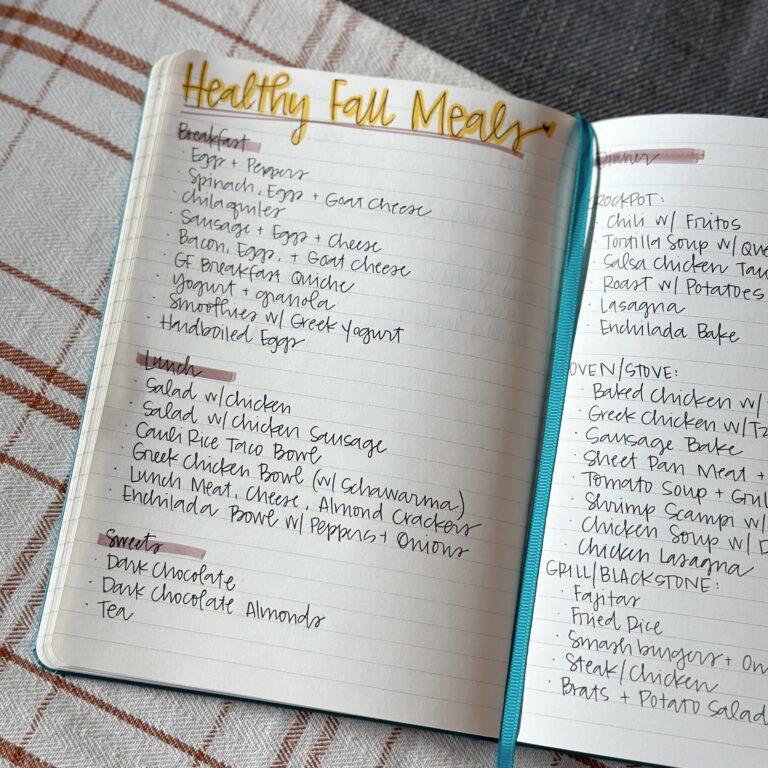 Healthy Fall Meals
Breakfast
· Eggs + Peppers
· Spinach, Eggs + Goat Cheese
· Chilaquiles
· Sausage + Eggs + Cheese
· Bacon, Eggs, + Goat Cheese
· GF Breakfast Quiche
· Yogurt + granola
· Smoothies w/ Greek Yogurt
· Hardboiled Eggs
Lunch
· Salad w/chicken
· Salad w/ Chicken Sausage
· Cauli Rice Taco Bowl
· Greek Chicken Bowl (w/ Schawarma)
· Lunch Meat, Cheese, Almond Crackers
· Enchilada Bowl w/ Peppers + Onions
Sweets
· Dark Chocolate
· Dark Chocolate Almonds
· Tea
Dinner
ROCKPOT:
· Chili w/ Fritos
· Tortilla Soup w/ Que
· Salsa Chicken
· Roast w/ Potatoes
· Lasagna
· Enchilada Bake
OVEN/STOVE:
· Baked Chicken w/
· Greek Chicken w/ Tz
· Sausage Bake
· Sheet Pan Meat +
· Tomato Soup + Gril
· Shrimp Scampi w/
· Chicken Soup w/
· Chicken Lasagna
GRILL/BLACKSTONE:
· Fajitas
· Fried Rice
· Smashburgers + On
· Steak/Chicken
· Brats + Potato Salad